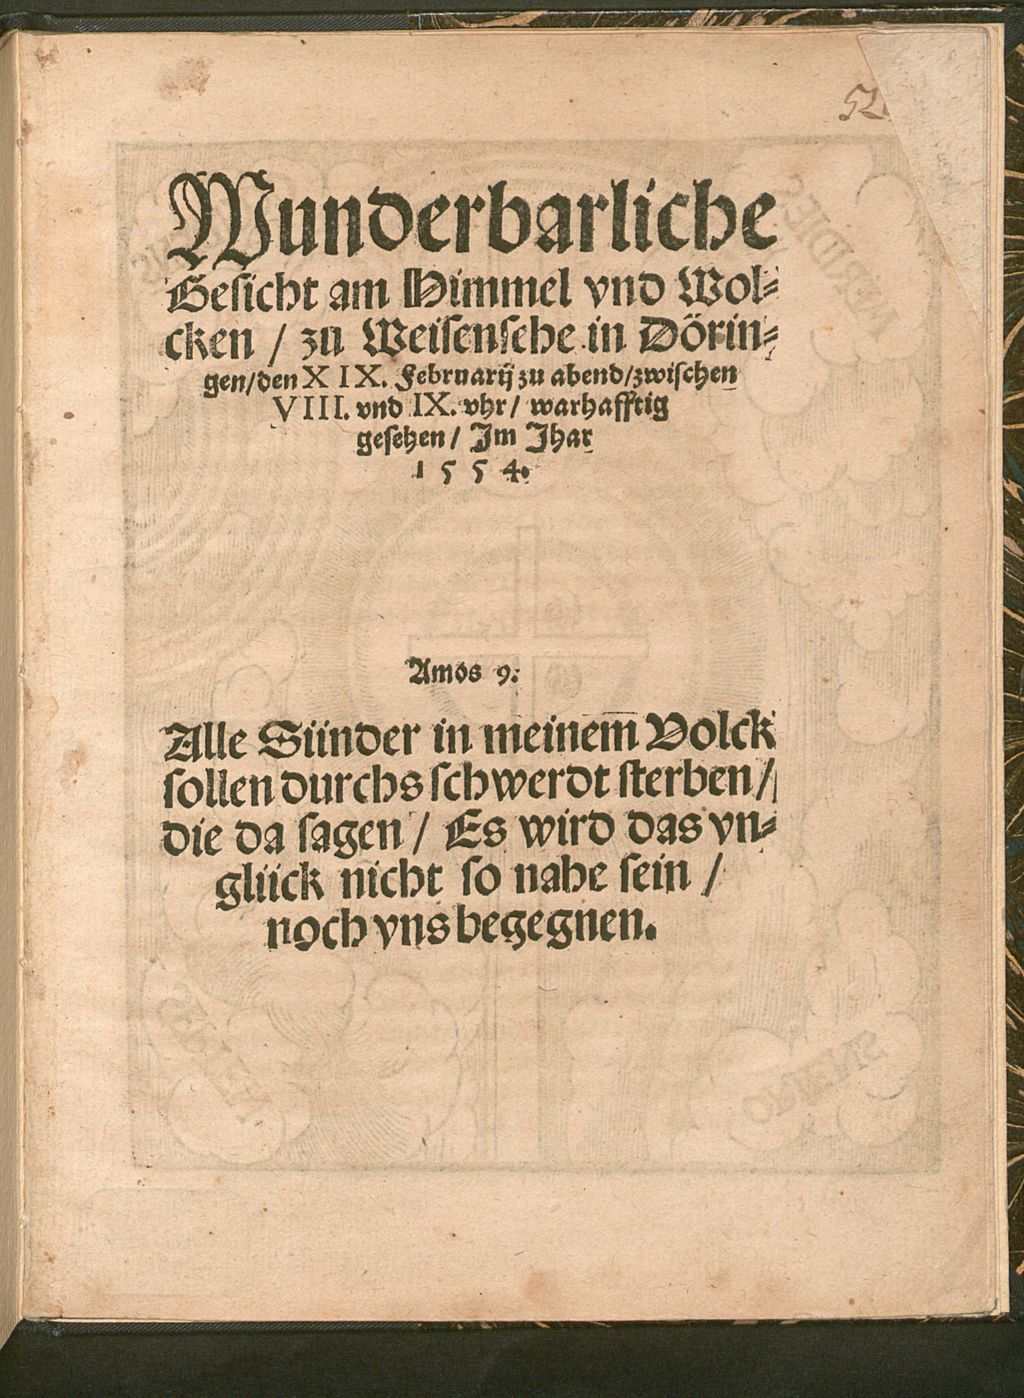 52
Wunderbarliche
Gesicht am Himmel vnd Wol⸗
cken / zu Weisensehe in Döꝛin⸗
gen/den XIX. Februarij zu abend/zwischen
VIII. vnd IX. vhr / warhafftig
gesehen / Im Jhar
1554.
Amos 9.
Alle Sünder in meinem̅ Volck
sollen durchs schwerdt sterben /
die da sagen / Es wird das vn⸗
glück nicht so nahe sein /
noch vns begegnen.